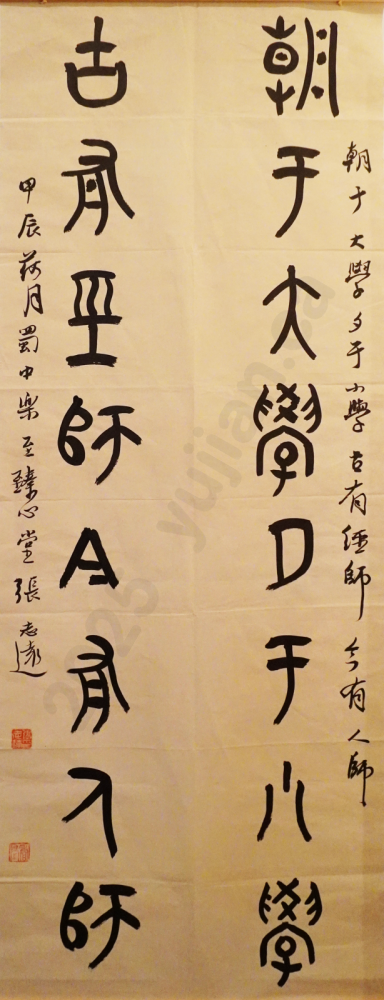 朝于大學夕于小學
古有巠師今有人師
朝于大學夕于小學古有經師今有人師
甲辰荷月蜀中樂至臻心堂張志遠
2025 yujian.ca